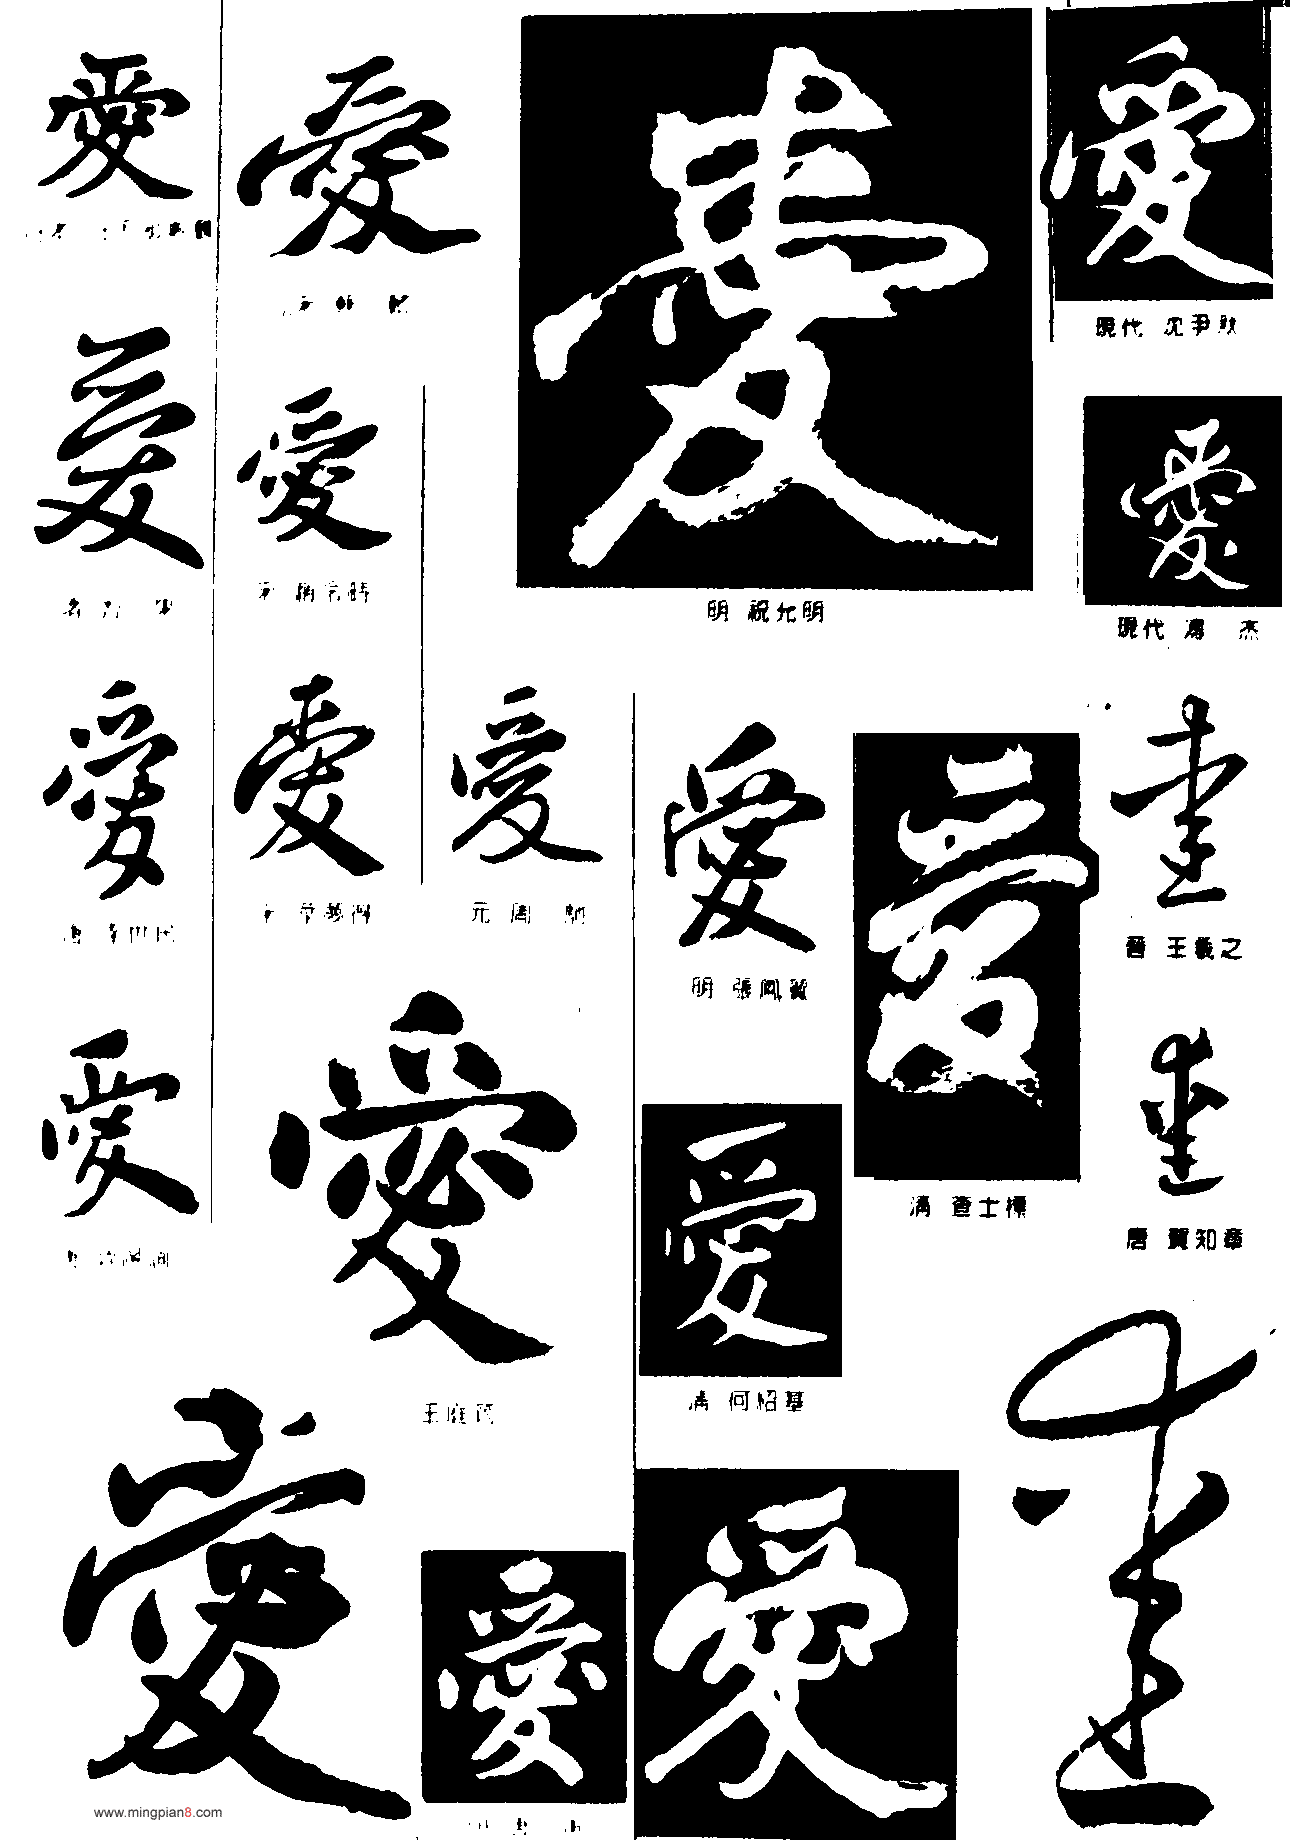 愛
愛
愛
愛
現代 沈尹默
愛
愛
愛
明 祝允明
現代 馮 杰
愛
愛
愛
愛
愛
愛
元 周馳
晉 王羲之
明 張鳳翼
愛
愛
愛
愛
清 查士標
唐 賀知章
王庭筠
清 何紹基
愛
愛
愛
愛
www.mingpian8.com